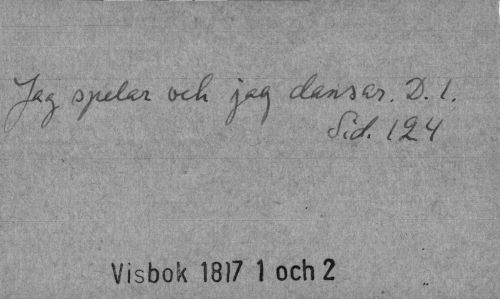 Jag spelar och jag dansar. D. 1.
Sid. 124
Visbok 1817 1 och 2